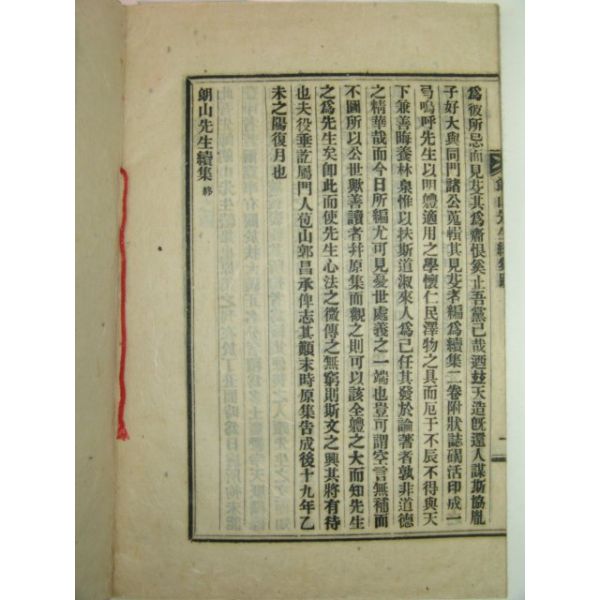 爲彼所忌而見芟其爲齎恨奚止吾黨已哉迺玆天造旣還人謀斯恊胤
子好大與同門諸公蒐輯其見芟者編爲續集二卷附狀誌碣活印成一
弓嗚呼先生以明體適用之學懷仁民澤物之具而厄于不辰不得與天
下兼善晦養林泉惟以扶斯道淑來人爲己任其發於論著者孰非道德
之精華哉而今日所編尤可見憂世處義之一端也豈可謂空言無補而
不圖所以公世歟善讀者幷原集而觀之則可以該全體之大而知先生
之爲先生矣卽此而使先生心法之微傳之無窮則斯文之興其將有待
也夫役垂訖屬門人苞山郭昌承俾志其顚末時原集告成後十九年乙
未之陽復月也
朗山先生續集 終